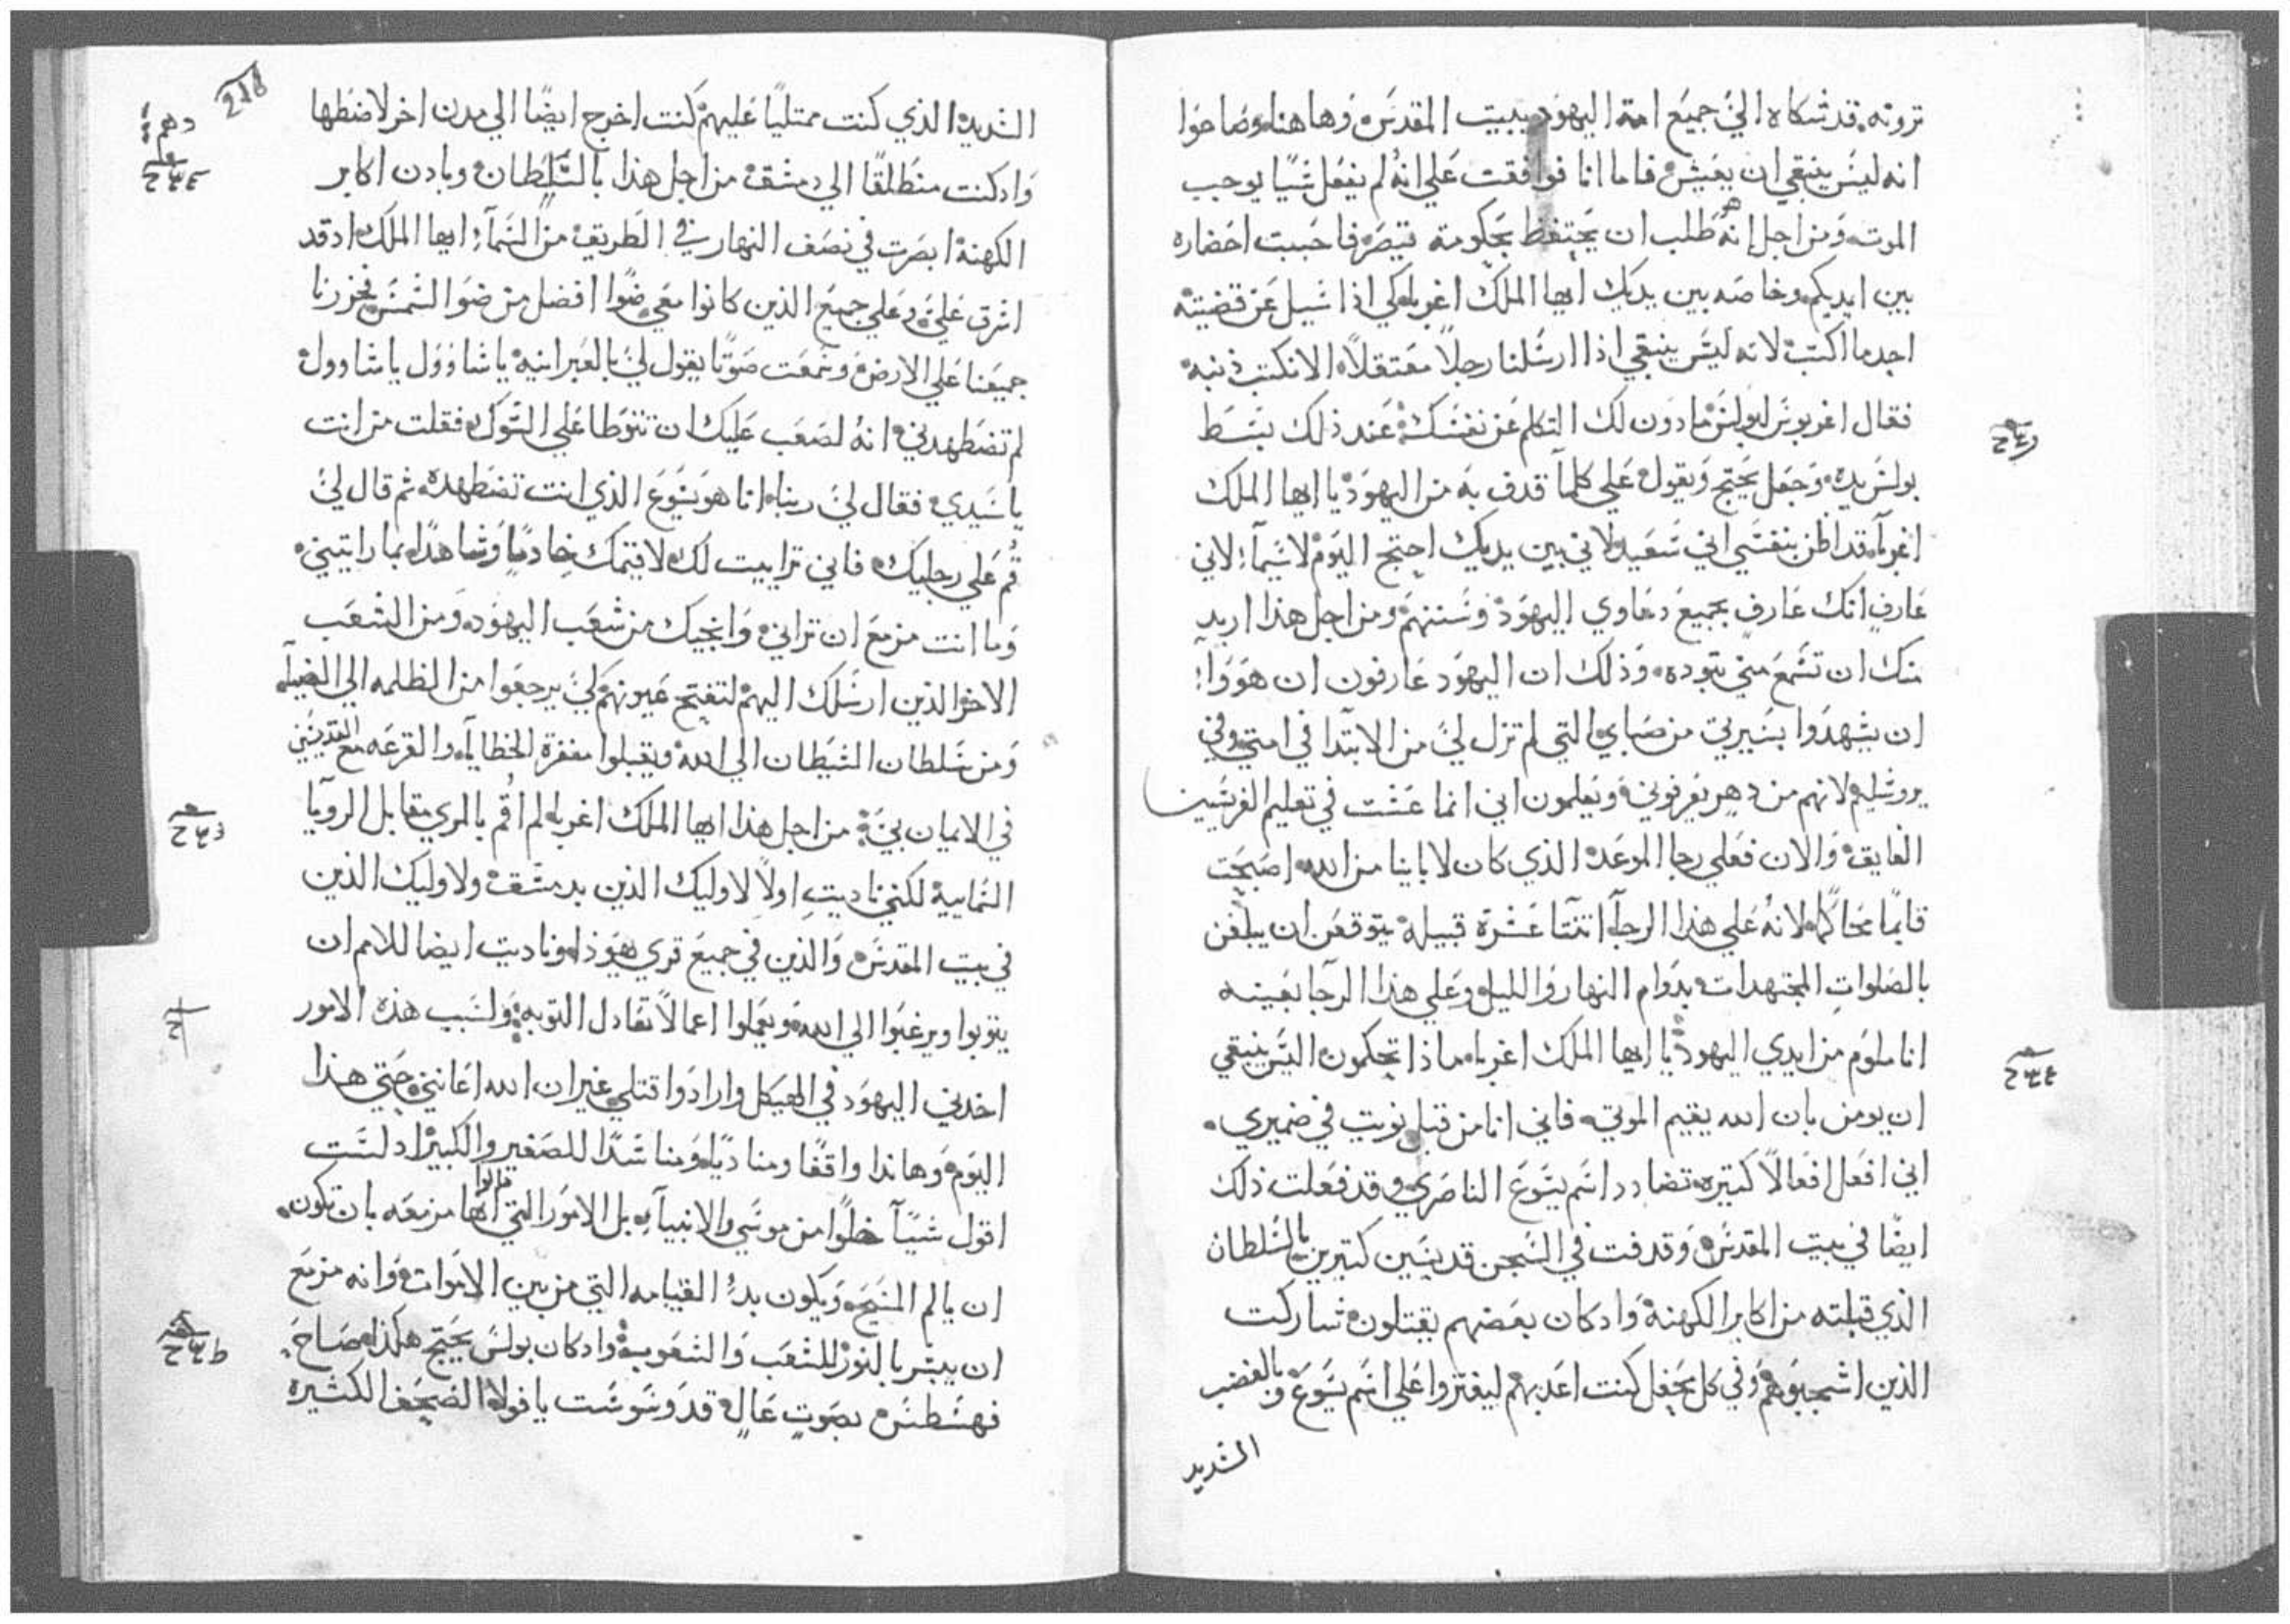 ترونه قد شكاه الي جميع امة اليهود ببيت المقدس وها هنا وصاحوا
انه ليس ينبغي ان يعيش فاما انا فوافقت علي انه لم يفعل شيا يوجب
الموت ومن اجل انه هو طلب ان يحتفظ بحكومة قيصر فاحببت احضاره
بين ايديكم وخاصه بين يديك ايها الملك اغرباه لكي اذا سيل عن قضيته
اجد ما اكتب لانه ليس ينبغي اذا ارسلنا رجلا معتقلا الا نكتب ذنبه
فقال اغربوس لبولس مادون لك التكلم عن نفسك عند ذلك بسط
بولس يده وجعل يحتج ويقول علي كلما قدف به من اليهود يا ايها الملك
اغرباه قد اظن بنفسي اني سعيد لاني بين يديك احتج اليوم لا سيما لاني
عارف انك عارف بجميع دعاوي اليهود وسننهم ومن اجل هذا اريد
منك ان تسمع مني بتوده وذلك ان اليهود عارفون ان هووا
ان يشهدوا بسيرتي من صباي التي لم تزل لي من الابتدا في امتي وفي
يروشليم لانهم من دهر يعرفوني ويعلمون اني انما عشت في تعليم الفريسيين
الفايق والان فعلي رجا الموعد الذي كان لاباينا من الله اصبحت
قايما محاكما لانه علي هذا الرجا اتنتا عشرة قبيله يتوقعن ان يبلغن
بالصلوات المجتهدات بدوام النهار والليل وعلي هذا الرجا بعينه
انا ملوم من ايدي اليهود يا ايها الملك اغرباه ماذا تحكمون اليس ينبغي
ان يومن بان الله يقيم الموتي فاني انا من قبل نويت في ضميري
اني افعل افعالا كتيره تضادد اسم يسوع الناصري وقد فعلت ذلك
ايضا في بيت المقدس وقدفت في السجن قديسين كتيرين بالسلطان
الذي قبلته من اكابر الكهنة واد كان بعضهم يقتلون شاركت
الذين اشجبوهم وفي كل محفل كنت اعدبهم ليفتروا علي اسم يسوع وبالغضب
الشديد
218
الشديد الذي كنت ممتليا عليهم كنت اخرج ايضا الي مدن اخر لاضطهها
واد كنت منطلقا الي دمشق من اجل هذا بالسلطان وبادن اكابر
الكهنة ابصرت في نصف النهار في الطريق من السما ايها الملك اد قد
اشرق علي وعلي جميع الذين كانوا معي ضوا افضل من ضو الشمس فخررنا
جميعنا علي الارض وسمعت صوتا يقول لي بالعبرانيه يا شاوول يا شاوول
لم تضطهدني انه لصعب عليك ان تتوطا علي الشوك فقلت من انت
يا سيدي فقال لي ربنا انا هو يسوع الذي انت تضطهده ثم قال لي
قم علي رجليك فاني ترايت لك لاقيمك خادما وشاهدا بما رايتني
وما انت مزمع ان تراني وانجيك من شعب اليهود ومن الشعب
الاخر الذين ارسلك اليهم لتفتح عيونهم لكي يرجعوا من الظلمه الي الضيا
ومن سلطان الشيطان الي الله ويقبلوا مغفرة الخطايا والقرعه مع القديسين
في الايمان بي من اجل هذا ايها الملك اغرباه لم اقم بالمري مقابل الرويا
السماييه لكنني ناديت اولا لاوليك الذين بدمشق ولاوليك الذين
في بيت المقدس والذين في جميع قري هيوذا وناديت ايضا للامم ان
يتوبوا ويرغبوا الي الله ويعملوا اعمالا تعادل التوبه ولسبب هذه الامور
اخدني اليهود في الهيكل وارادوا قتلي غير ان الله اعانني حتي هذا
اليوم وها ندا واقفا ومناديا ومناشدا للصغير والكبير اد لست
اقول شيا خلوا من موسي والانبيا بل الامور التي قالوا انها مزمعه بان تكون
ان يالم المسيح ويكون بدء القيامه التي من بين الاموات وانه مزمع
ان يبشر بالنور للشعب والشعوب واد كان بولس يحتج هكذا صاح
فهسطس بصوت عال قد وسوست يا فولا الصحف الكثيره